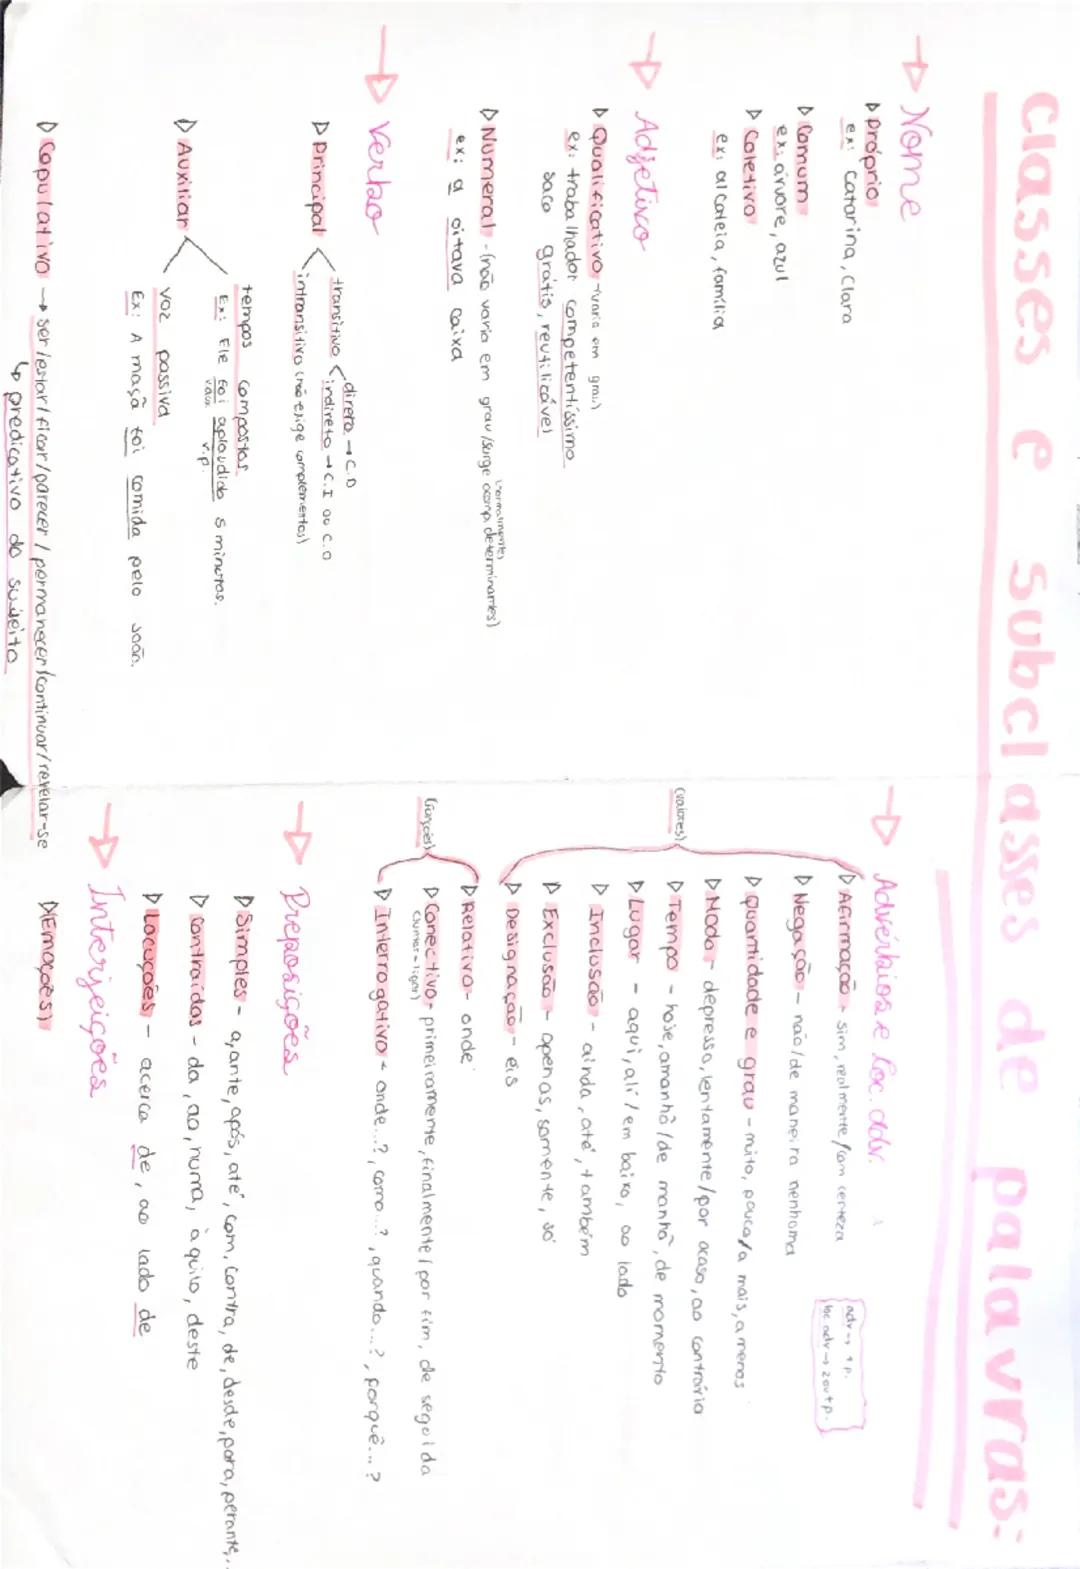 Classes e subclasses de palavras:
→ Nome
▷ Próprio
ex: Catarina, Clara
▷ Comum
ex: árvore, azul
▷ Coletivo
ex: alcateia, família
→ Adjetivo
▷ Qualificativo (varia em grau)
ex: trabalhador competentíssimo
saco grátis, reutilizável
▷ Numeral - (não varia em grau / surge (normalmente) acomp. determinantes)
ex: a oitava caixa
→ Verbo
▷ principal
transitivo
direto → C.D
indireto → C.I ou C.O
intransitivo (não exige complementos)
▷ Auxiliar
tempos compostos
Ex: Ele foi aplaudido 5 minutos.
v.aux. v.p.
voz passiva
Ex: A maçã foi comida pelo João.
▷ Copulativo → ser/estar/ficar/parecer/permanecer/continuar/revelar-se
↳ predicativo do sujeito
→ Advérbios e loc. adv.
adv → 1 p.
loc adv → 2 ou + p.
(valores)
▷ Afirmação - sim, realmente/com certeza
▷ Negação - não/de maneira nenhuma
▷ Quantidade e grau - muito, pouco/a mais, a menos
▷ Modo - depressa, lentamente/por acaso, ao contrário
▷ Tempo - hoje, amanhã/de manhã, de momento
▷ Lugar - aqui, ali/em baixo, ao lado
▷ Inclusão - ainda, até, também
▷ Exclusão - apenas, somente, só
▷ Designação - eis
(funções)
▷ Relativo - onde
▷ Conectivo - primeiramente, finalmente/por fim, de seguida
▷ Interrogativo - onde...?, como...?, quando...?, porquê...?
→ Preposições
▷ Simples - a, ante, após, até, com, contra, de, desde, para, perante,...
▷ Contraídas - da, ao, numa, àquilo, deste
▷ Locuções - acerca de, ao lado de
→ Interjeições
▷ (Emoções)